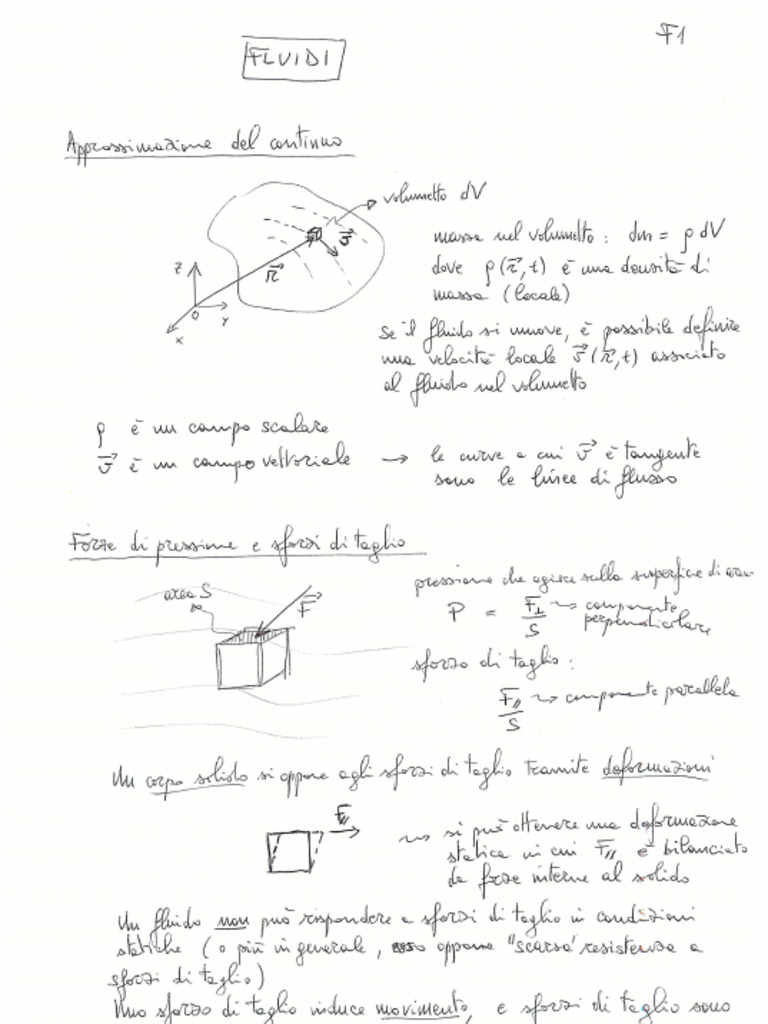 F1
FLUIDI
Approssimazione del continuo
volumetto dV
massa nel volumetto: dm = ρ dV
dove ρ(r⃗,t) è una densità di
massa (locale)
Se il fluido si muove, è possibile definire
una velocità locale v⃗(r⃗,t) associato
al fluido nel volumetto
z
v⃗
r⃗
O
y
x
ρ è un campo scalare
v⃗ è un campo vettoriale → le curve a cui v⃗ è tangente
sono le linee di flusso
Forze di pressione e sforzi di taglio
area S
F⃗
pressione che agisce sulla superficie di area
P = F⊥/S ⤳ componente
perpendicolare
sforzo di taglio:
F∥/S ⤳ componente parallela
Un corpo solido si oppone agli sforzi di taglio tramite deformazioni
F∥
⤳ si può ottenere una deformazione
statica in cui F∥ è bilanciato
da forze interne al solido
Un fluido non può rispondere a sforzi di taglio in condizioni
statiche (o più in generale, esso oppone "scarsa" resistenza a
sforzi di taglio)
Uno sforzo di taglio induce movimento, e sforzi di taglio sono